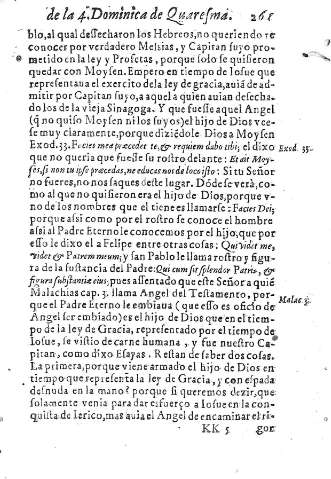 de la 4. Dominica de Quaresma. 265
blo, al qual dessecharon los Hebreos, no queriendo re
conoces por verdadero Mesias, y Capitan suyo pro-
metido en la ley y Profetas, porque solo se quisieron
quedar con Moysen. Empero en tiempo de Iosue que
representaua el exercito de la ley de gracia, auiá de ad-
mitir por Capitan suyo, a aquel a quien auian desecha-
do los de la vieja Sinagoga. Y que fuesse aquel Angel
(q no quiso Moysen ni los suyos) el hijo de Dios vee-
se muy claramente, porque diziédole Dios a Moysen
Exod.33. Facies mea præcedet te, & requiem dabo tibi; el dixo
que no queria que fuesse su rostro delante: Et ait Moy-
Exod. 33.
ses, si non tu ipse præcedas, ne educas nos de loco isto: Si tu Señor
no fueres, no nos saques deste lugar. Dóde se verá, co-
mo al que no quisieron era el hijo de Dios, porque v-
no de los nombres que el tiene es llamarse: Facies Dei;
porque assi como por el rostro se conoce el hombre
assi al Padre Eterno le conocemos por el hijo, que por
esso le dixo el a Felipe entre otras cosas: Qui videt me,
videt & Patrem meum; y san Pablo le llama rostro y figu
ra de la sustancia del Padre: Qui cum sit splendor Patris, &
figura substantiæ eius; pues assentado que este Señor a quié
Malachias cap. 3. llama Angel del Testamento, por-
Malac 3.
que el Padre Eterno le embiaua (que esso es oficio de
Angel ser embiado) es el hijo de Dios que en el tiem-
po de la ley de Gracia, representado por el tiempo de
Iosue, se vistio de carne humana, y fue nuestro Ca-
pitan, como dixo Esayas. Restan de saber dos cosas.
La primera, porque viene armado el hijo de Dios en
tiempo que representa la ley de Gracia, y con espada
desnuda en la mano? porque si queremos dezir, que
solamente venia para dar esfuerço a Iosue en la con-
quista de Ierico, mas auia el Angel de encaminar el ri-
KK 5 gor